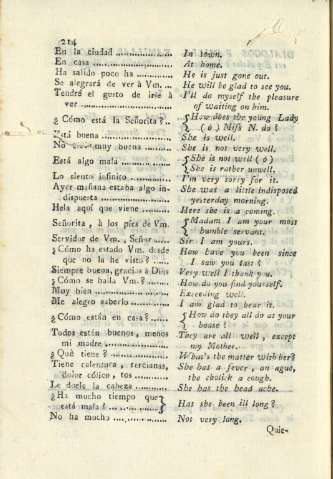 214
En la ciudad ............... In town.
En casa ..................... At home.
Ha salido poco ha ............ He is just gone out.
Se alegrará de ver à Vm. ... He will be glad to see you.
Tendré el gusto de irle à I'll do myself the pleasure
ver ........................ of waiting on him.
¿ Cómo está la Señorita ? .. { How does the young Lady
( ó ) Miss N. do ?
Está buena .................. She is well.
No muy buena ........... She is not very well.
Está algo mala .............. { She is not well ( ó )
She is rather unwell.
Lo siento infinito ............ I'm very sorry for it.
Ayer mañana estaba algo in- She was a little indisposed
dispuesta .................. yesterday morning.
Hela aquí que viene ......... Here she is a coming.
Señorita , à los pies de Vm. { Madam I am your most
humble servant.
Servidor de Vm., Señor ..... Sir I am yours.
¿ Cómo ha estado Vm. desde How have you been since
que no la he visto ? ....... I saw you last ?
Siempre buena, gracias à Dios Very well I thank you.
¿ Cómo se halla Vm. ? ....... How do you find yourself.
Muy bien .................... Exceeding well.
Me alegro saberlo ............ I am glad to hear it.
¿ Cómo están en casa ? ...... { How do they all do at your
house ?
Todos están buenos, menos They are all well , except
mi madre .................. my Mother.
¿ Qué tiene ? ................ What's the matter with her ?
Tiene calentura , tercianas, She has a fever , an ague,
dolor cólico , tos ......... the cholick a cough.
Le duele la cabeza .......... She has the head ache.
¿ Ha mucho tiempo que }
está mala ? ............... } Has she been ill long ?
No ha mucho ................ Not very long.
Quie-